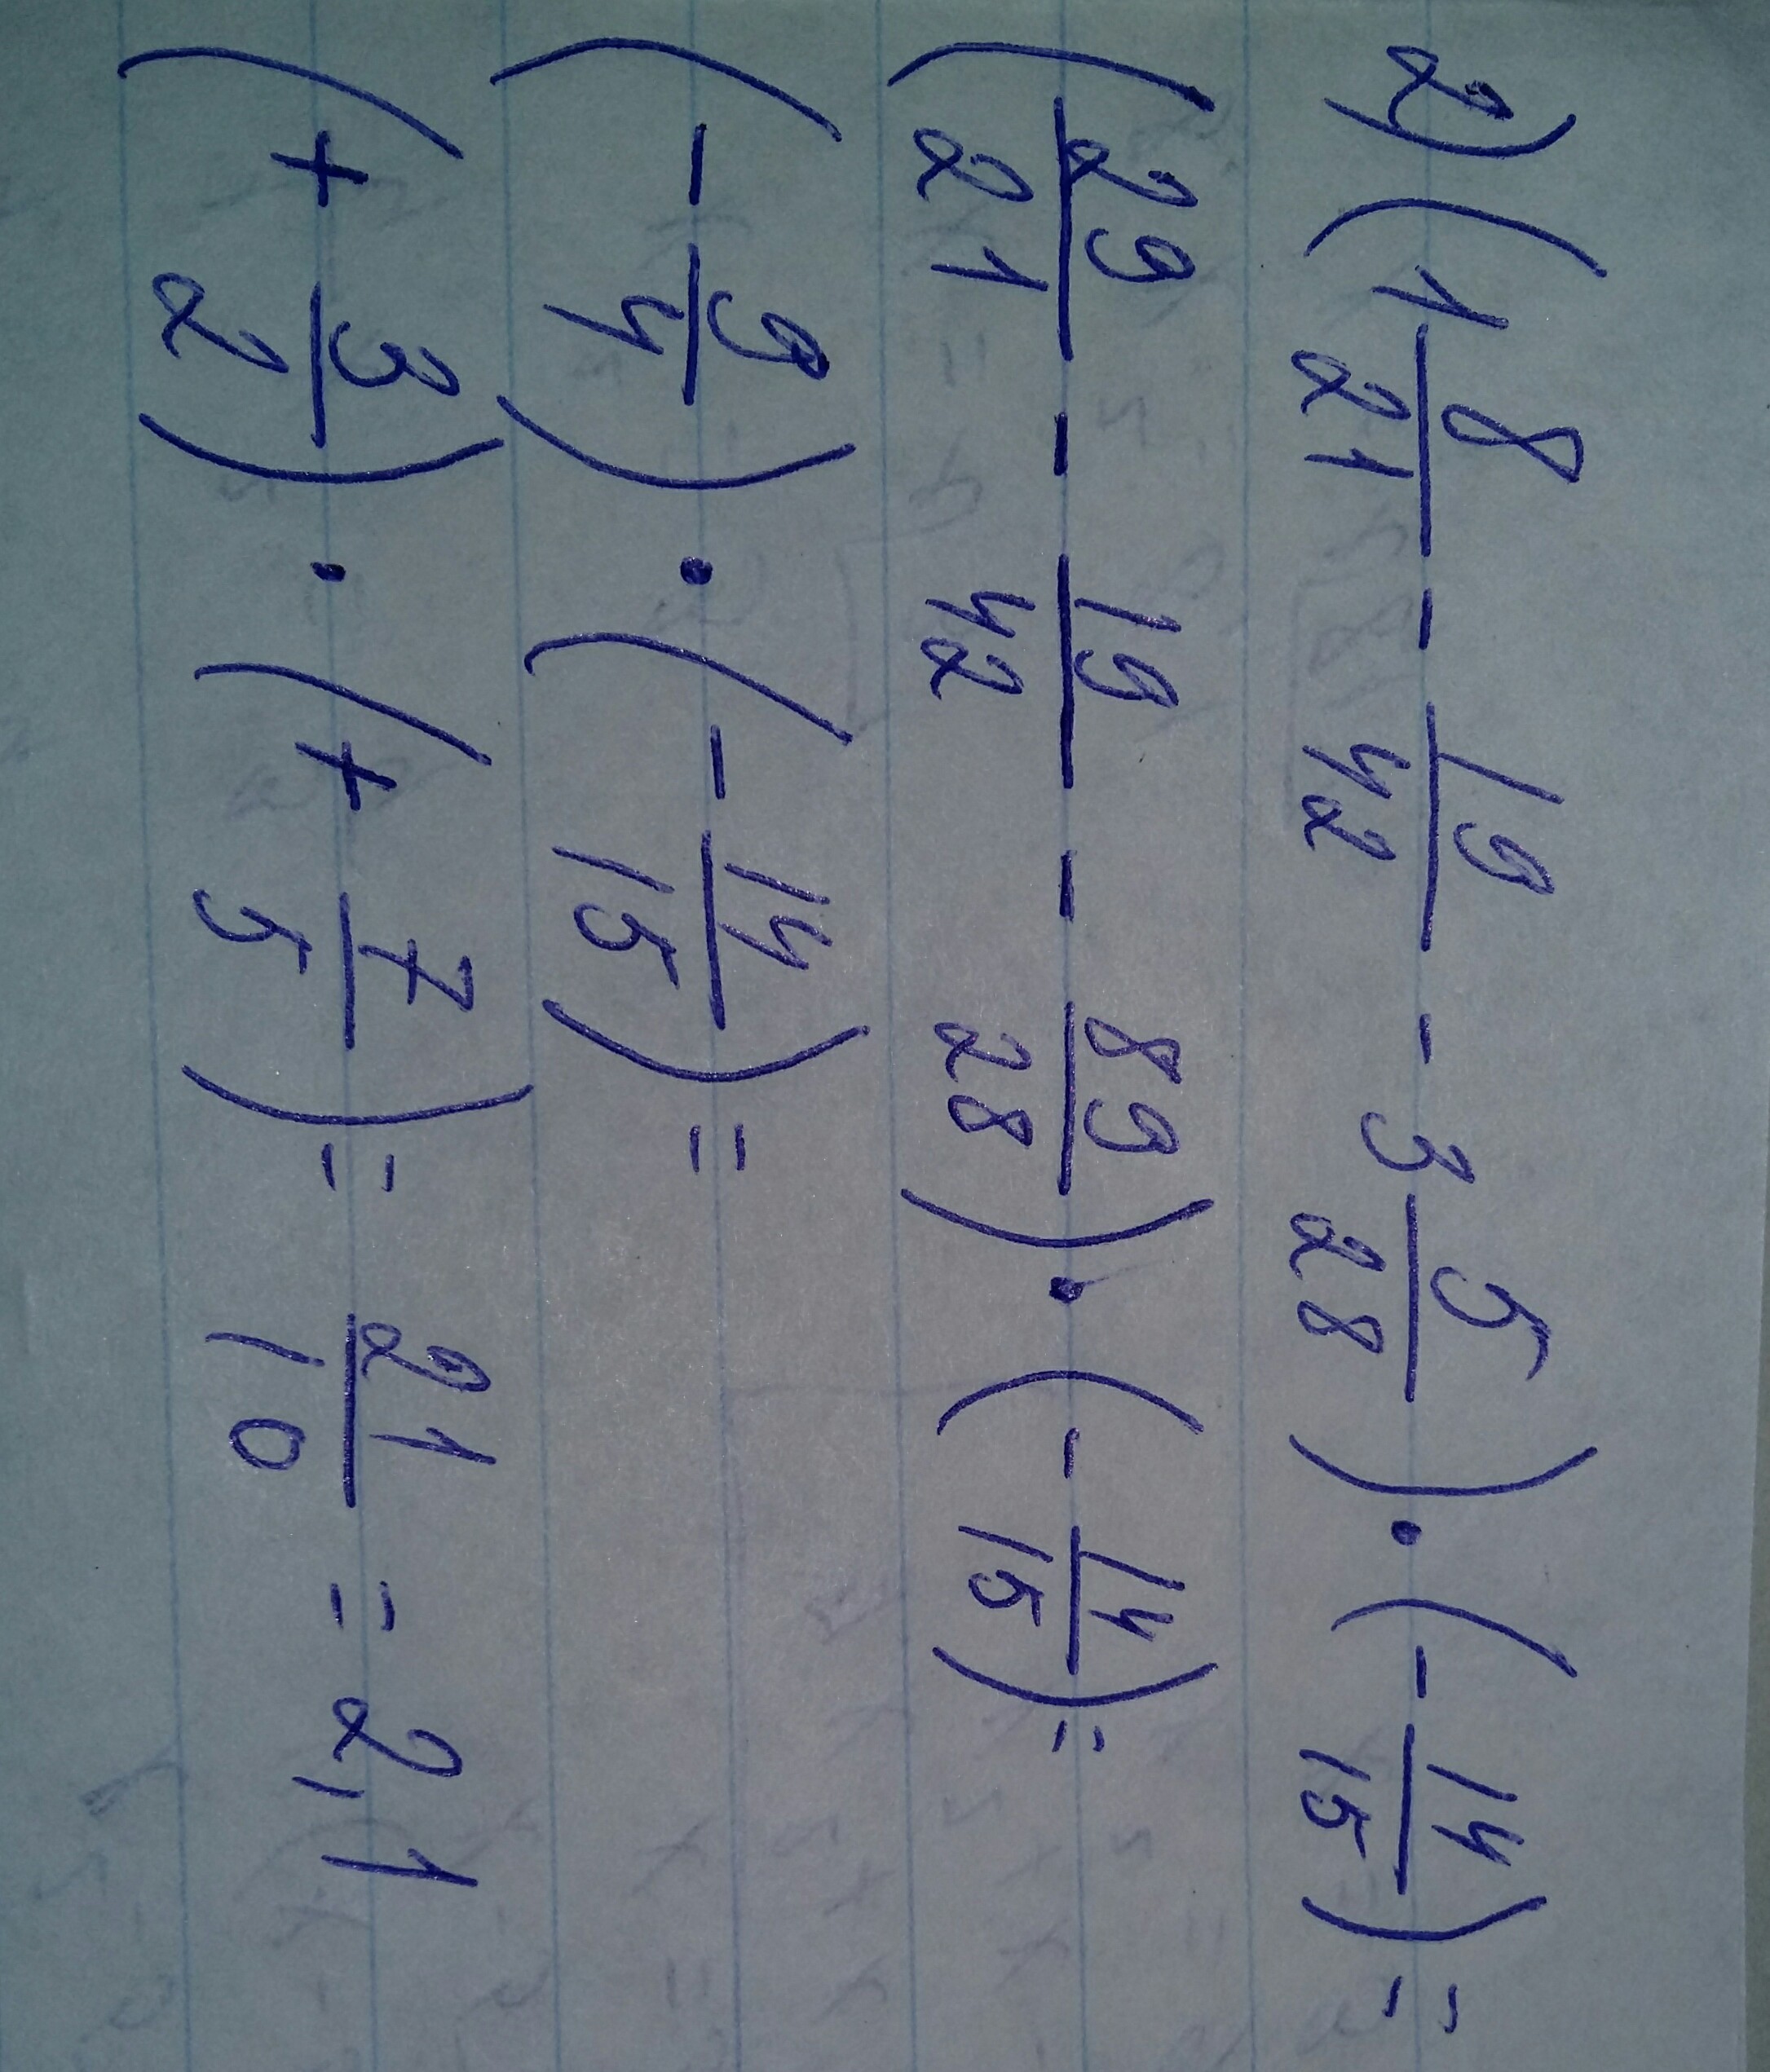 2) (1 8/21 - 19/42 - 3 5/28) · (- 14/15) =
(29/21 - 19/42 - 89/28) · (- 14/15) =
(- 9/4) · (- 14/15) =
(+ 3/2) · (+ 7/5) = 21/10 = 2,1